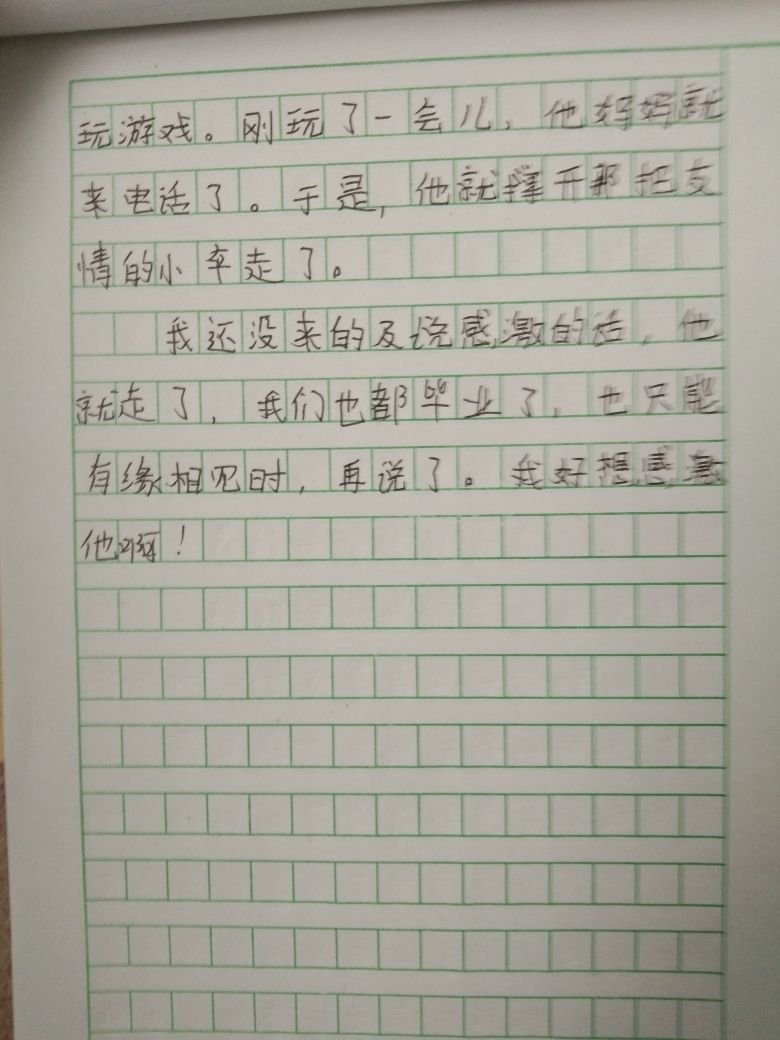 玩游戏。刚玩了一会儿,他妈妈就
来电话了。于是,他就撑开那把友
情的小伞走了。
我还没来的及说感激的话,他
就走了,我们也都毕业了,也只能
有缘相见时,再说了。我好想感激
他啊!